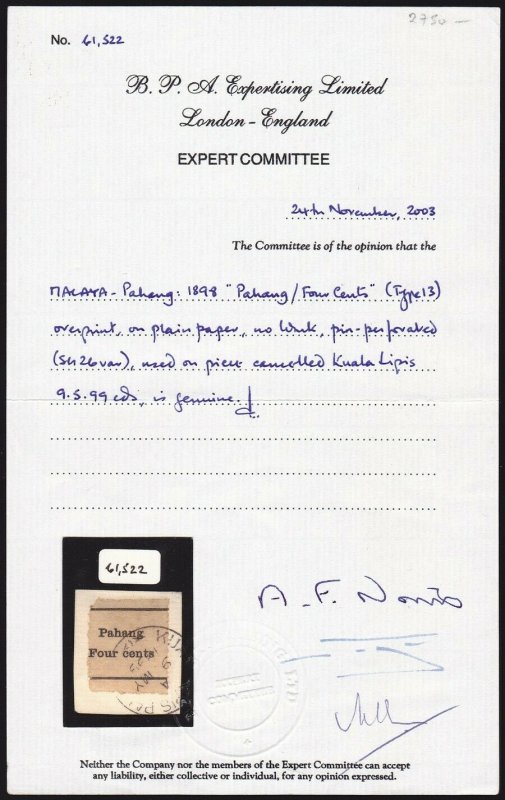 2750 —
No. 61,522
B. P. A. Expertising Limited
London - England
EXPERT COMMITTEE
24th November, 2003
The Committee is of the opinion that the
MALAYA - Pahang: 1898 "Pahang/Four Cents" (Type 13)
overprint, on plain paper, no wmk, pin-perforated
(SG 26 var), used on piece cancelled Kuala Lipis
9.5.99 cds, is genuine.
61,522
Pahang
Four cents
A. F. Norris
Neither the Company nor the members of the Expert Committee can accept
any liability, either collective or individual, for any opinion expressed.